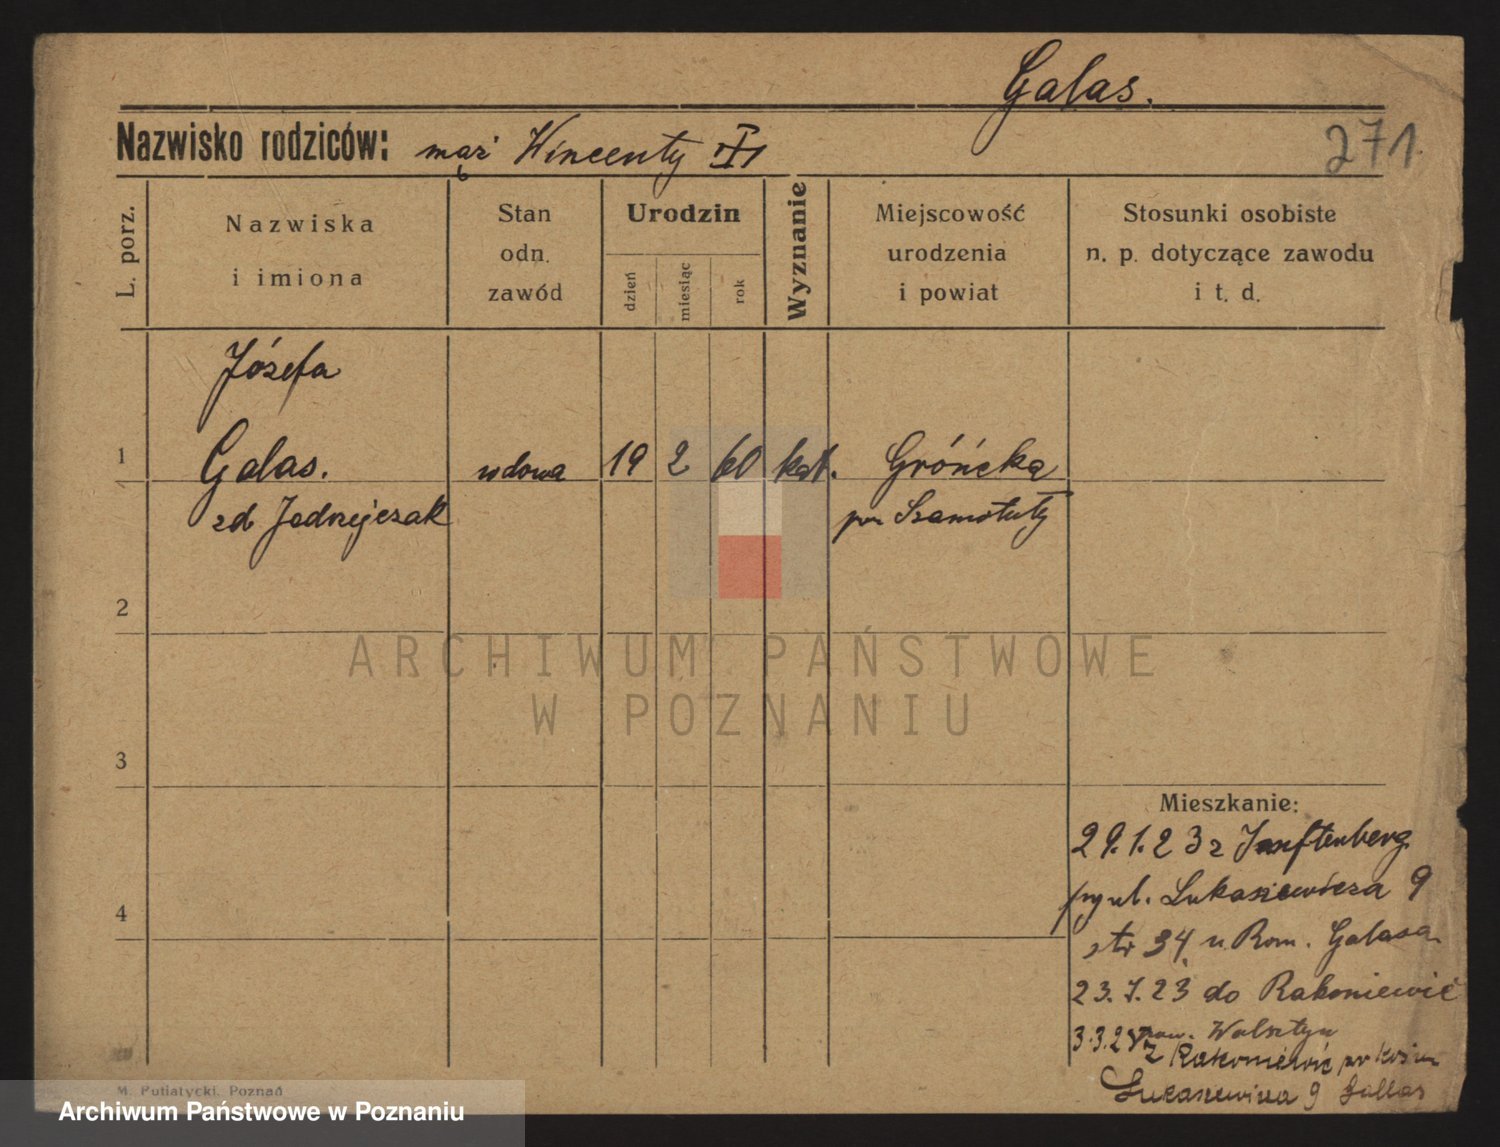 Galas.
Nazwisko rodziców: mąż Wincenty
271
L. porz.
Nazwiska
i imiona
Stan
odn.
zawód
Urodzin
dzień
miesiąc
rok
Wyznanie
Miejscowość
urodzenia
i powiat
Stosunki osobiste
n. p. dotyczące zawodu
i t. d.
Józefa
1 Galas. wdowa 19 2 60 kat. Gróńcka
zd Jedrzejczak pow Szamotuły
2
3
4
ARCHIWUM PAŃSTWOWE
W POZNANIU
Mieszkanie:
29.1.23 z
ul. Łukaszewicza 9
ptr 34 u Rom. Galasa
23.7.23 do Rakoniewić
pow. Wolsztyn
3.3.28 z Rakoniewić
Łukaszewicza 9
M. Putiatycki, Poznań
Archiwum Państwowe w Poznaniu